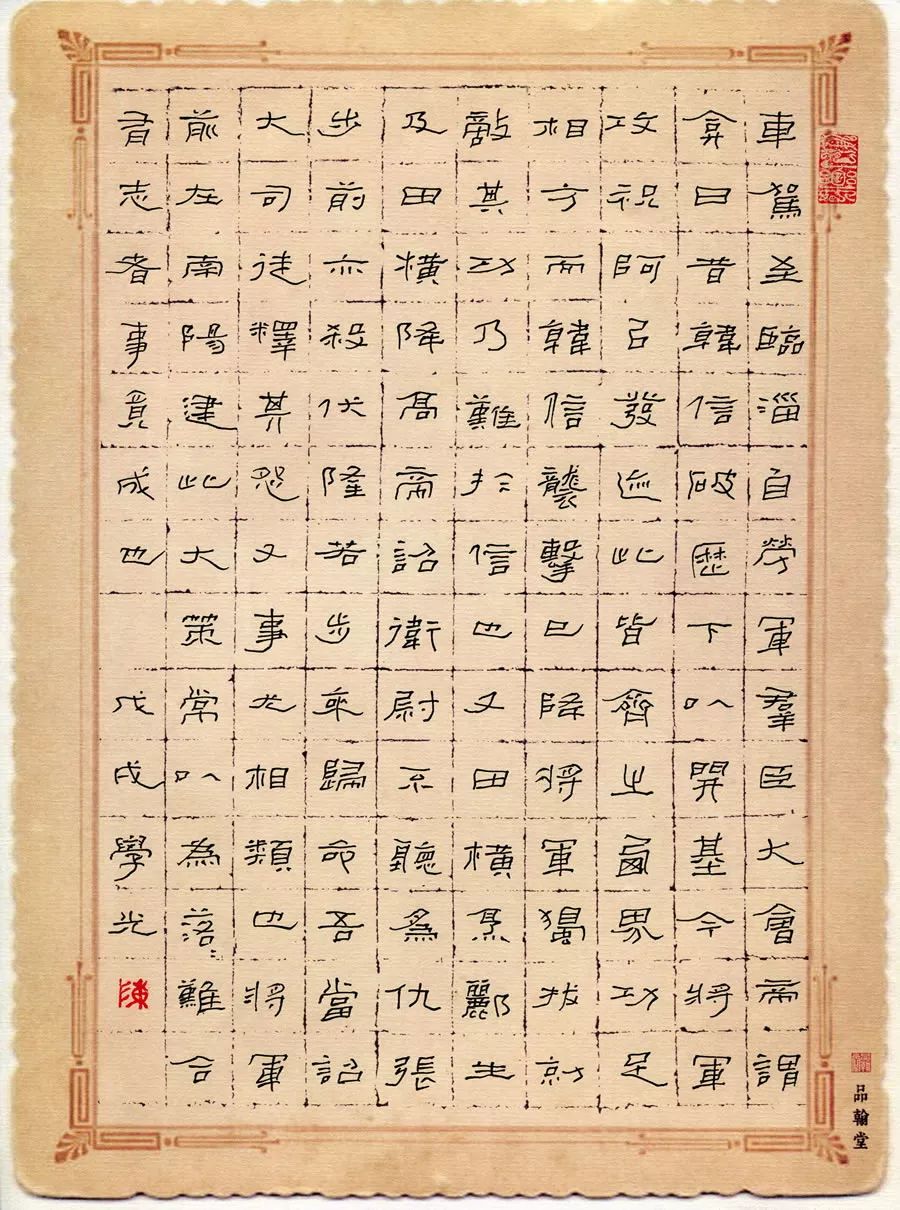 車駕至臨淄自勞軍羣臣大會帝謂
弇曰昔韓信破歷下以開基今將軍
攻祝阿㠯發迹此皆齊之西界功足
相方而韓信襲擊已降將軍獨拔勍
敵其功乃難於信也又田橫烹酈生
及田橫降高帝詔衛尉不聽為仇張
步前亦殺伏隆若步來歸命吾當詔
大司徒釋其怨又事尤相類也將軍
前在南陽建此大策常以為落〻難合
有志者事竟成也 戊戌學光 陳
品翰堂